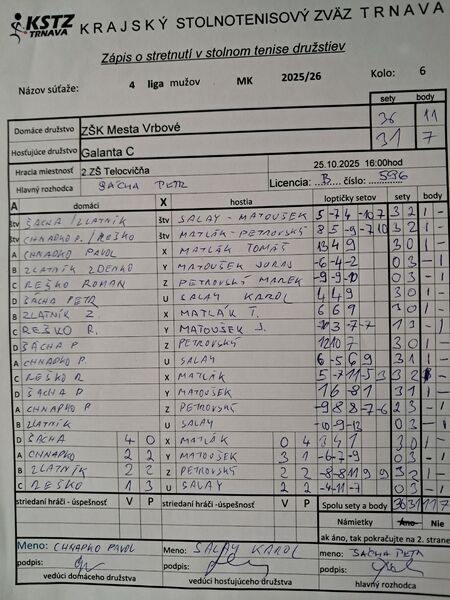 KSTZ TRNAVA KRAJSKÝ STOLNOTENISOVÝ ZVÄZ TRNAVA
Zápis o stretnutí v stolnom tenise družstiev
Názov súťaže: 4 liga mužov MK 2025/26 Kolo: 6
sety body
Domáce družstvo ZŠK Mesta Vrbové 36 11
Hosťujúce družstvo Galanta C 31 7
Hracia miestnosť 2.ZŠ Telocvičňa 25.10.2025 16:00hod
Hlavný rozhodca ŠÁCHA PETR Licencia: B číslo: 596
A domáci X hostia loptičky setov sety body
štv ŠÁCHA / ZLATNÍK štv SALAY - MATOUŠEK 5 -7 4 -10 7 3 2 1 -
štv CHNAPKO P. / REŠKO štv MATLÁK - PETROVSKÝ 8 5 -9 -7 10 3 2 1 -
A CHNAPKO PAVOL X MATLÁK TOMÁŠ 13 4 9 3 0 1 -
B ZLATNÍK ZDENKO Y MATOUŠEK JURAJ -6 -4 -2 0 3 - 1
C REŠKO ROMAN Z PETROVSKÝ MAREK -9 -9 -10 0 3 - 1
D ŠÁCHA PETR U SALAY KAROL 4 4 9 3 0 1 -
B ZLATNÍK Z. X MATLÁK T. 6 6 9 3 0 1 -
C REŠKO R. Y MATOUŠEK J. -10 3 -7 -7 1 3 - 1
D ŠÁCHA P Z PETROVSKÝ 12 10 7 3 0 1 -
A CHNAPKO P. U SALAY 6 -5 6 9 3 1 1 -
C REŠKO R X MATLÁK 5 -7 11 -5 3 3 2 1 -
D ŠÁCHA P Y MATOUŠEK 16 -8 1 3 1 1 -
A CHNAPKO P Z PETROVSKÝ -9 8 8 -7 -6 2 3 - 1
B ZLATNÍK U SALAY -10 -9 -12 0 3 - 1
D ŠÁCHA 4 0 X MATLÁK 0 4 3 4 1 3 0 1 -
A CHNAPKO 2 2 Y MATOUŠEK 3 1 -6 -7 -9 0 3 - 1
B ZLATNÍK 2 2 Z PETROVSKÝ 2 2 -8 -8 11 9 9 3 2 1 -
C REŠKO 1 3 U SALAY 2 2 -4 -11 -7 0 3 - 1
striedaní hráči - úspešnosť V P striedaní hráči -úspešnosť V P Spolu sety a body 36 31 11 7
Námietky Áno Nie
ak áno, tak pokračujte na 2. strane
Meno: CHNAPKO PAVOL Meno: SALAY KAROL meno: ŠÁCHA PETR
podpis: podpis: podpis:
vedúci domáceho družstva vedúci hosťujúceho družstva hlavný rozhodca